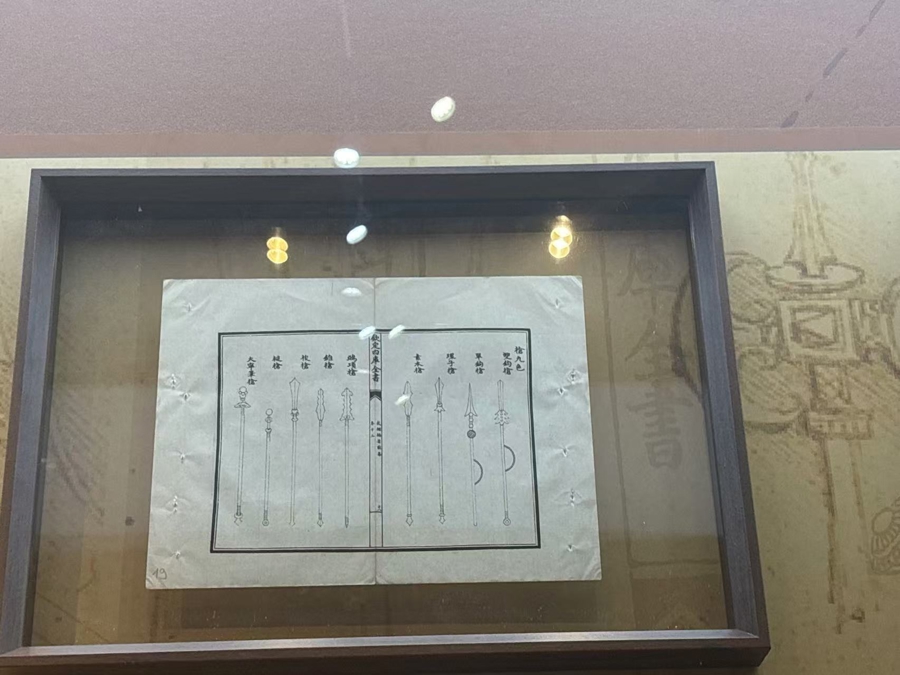 槍九色
雙鉤槍
單鉤槍
環子槍
素木槍
欽定四庫全書
鵶項槍
錐槍
梭槍
槌槍
太寧筆槍
19
庫全書